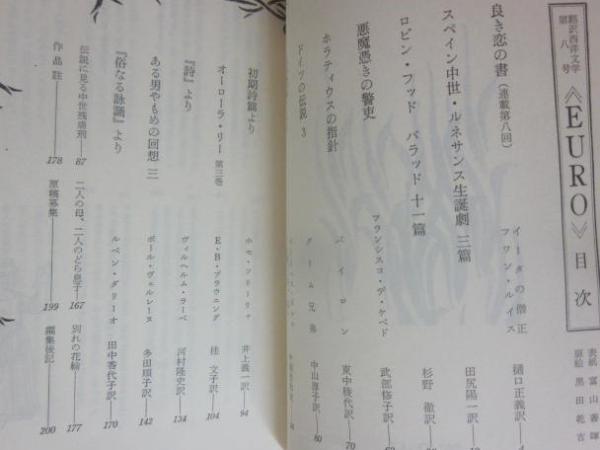 翻訳西洋文学
第八号
《EURO》目次
表紙 富山善暉
原絵 黒田乾吉
良き恋の書（連載第八回）
イータの僧正
フワン・ルイス
樋口正義訳 4
スペイン中世・ルネサンス生誕劇 三篇
田尻陽一訳
ロビン・フッド バラッド 十一篇
杉野 徹訳
悪魔憑きの警吏
フランシスコ・デ・ケベド
武部修子訳
ホラティウスの指針
バイロン
東中稜代訳 70
ドイツの伝説 3
グリム兄弟
中山淳子訳 80
初期詩篇より
ホセ・ソリーリャ
井上義一訳 94
オーローラ・リー 第三巻
E・B・ブラウニング
桂 文子訳 104
ある男やもめの回想 三
ヴィルヘルム・ラーベ
河村隆史訳 134
『詩』より
ポール・ヴェルレーヌ
多田順子訳 142
『俗なる詠誦』より
ルベン・ダリーオ
田中香代子訳 170
伝説に見る中世残痛刑 87
二人の母、二人のどら息子 167
別れの花絵 177
作品註 178
原稿募集 199
編集後記 200